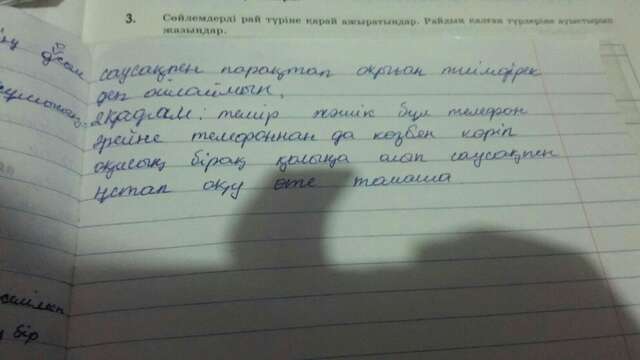 3. Сөйлемдерді рай түріне қарай ажыратыңдар. Райдың қалған түрлеріне ауыстырып
жазыңдар.
саусақпен парақтап оқыған тиімдірек
деп ойлаймын.
2қадам: темір жәшік бұл телефон
әрейне телефоннан да көзбен көріп
оқисың бірақ қолыңа алап саусақпен
ұстап оқу өте тамаша
бір